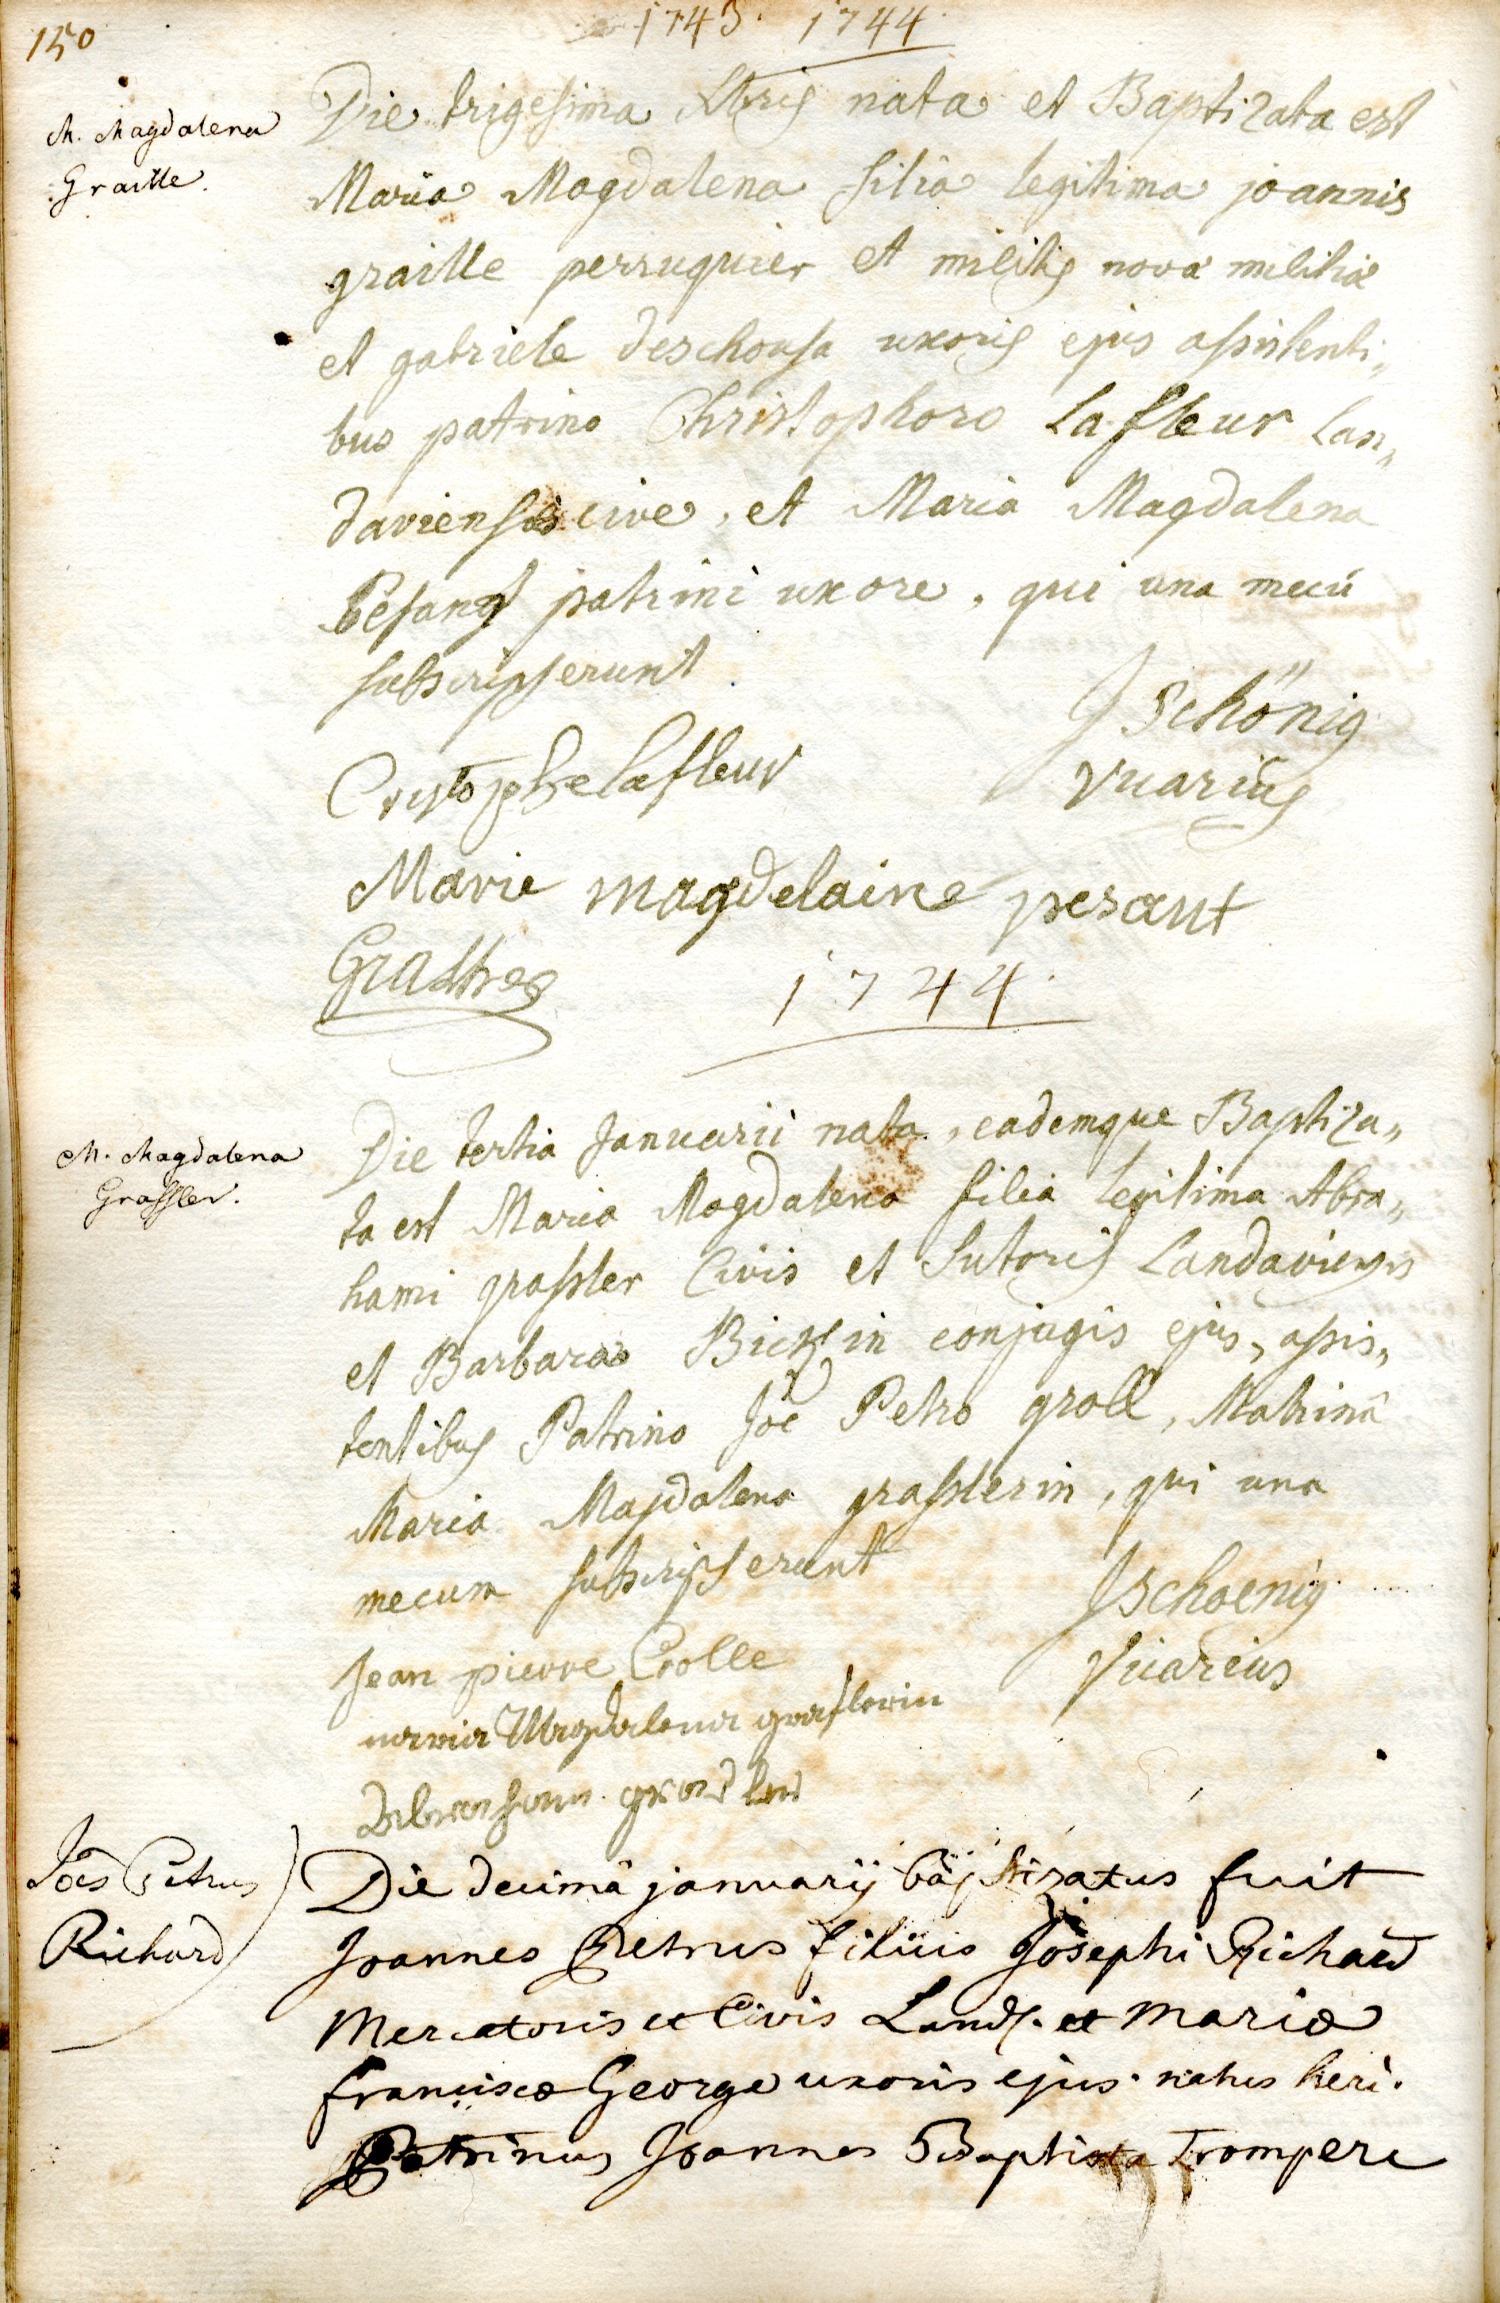 150
1743. 1744.
M. Magdalena
Graille.
Die trigesima Xbris nata et Baptizata est
Maria Magdalena filia legitima joannis
graille perruquier et militis novæ militiæ
et gabriele deschousa uxoris ejus assistenti„
bus patrino Christophoro La fleur Lan„
daviensis cive, et Maria Magdalena
Besang patrini uxore, qui una mecū
subscripserunt
JSchönig
Vicarius
Cristophe lafleur
Marie magdelaine pesant
1744.
M. Magdalena
Grassler.
Die tertia Januarii nata, eademque Baptiza„
ta est Maria Magdalena filia legitima Abra„
hami grassler Civis et Sutoris Landaviensis
et Barbaræ conjugis ejus, assis„
tentibus Patrino Joe Petro groll, Matrinâ
Maria Magdalena grasslerin, qui una
mecum subscripserunt
JSchoenig
Vicarius
Jean pierre Crolle
maria Magdalena grasslerin
Joēs Petrus
Richard
Die decimâ januarij baptizatus fuit
Joannes Petrus filius Josephi Richard
Mercatoris et Civis Land. et Mariæ
franciscæ George uxoris ejus. natus heri.
Patrinus Joannes Baptista Trompere